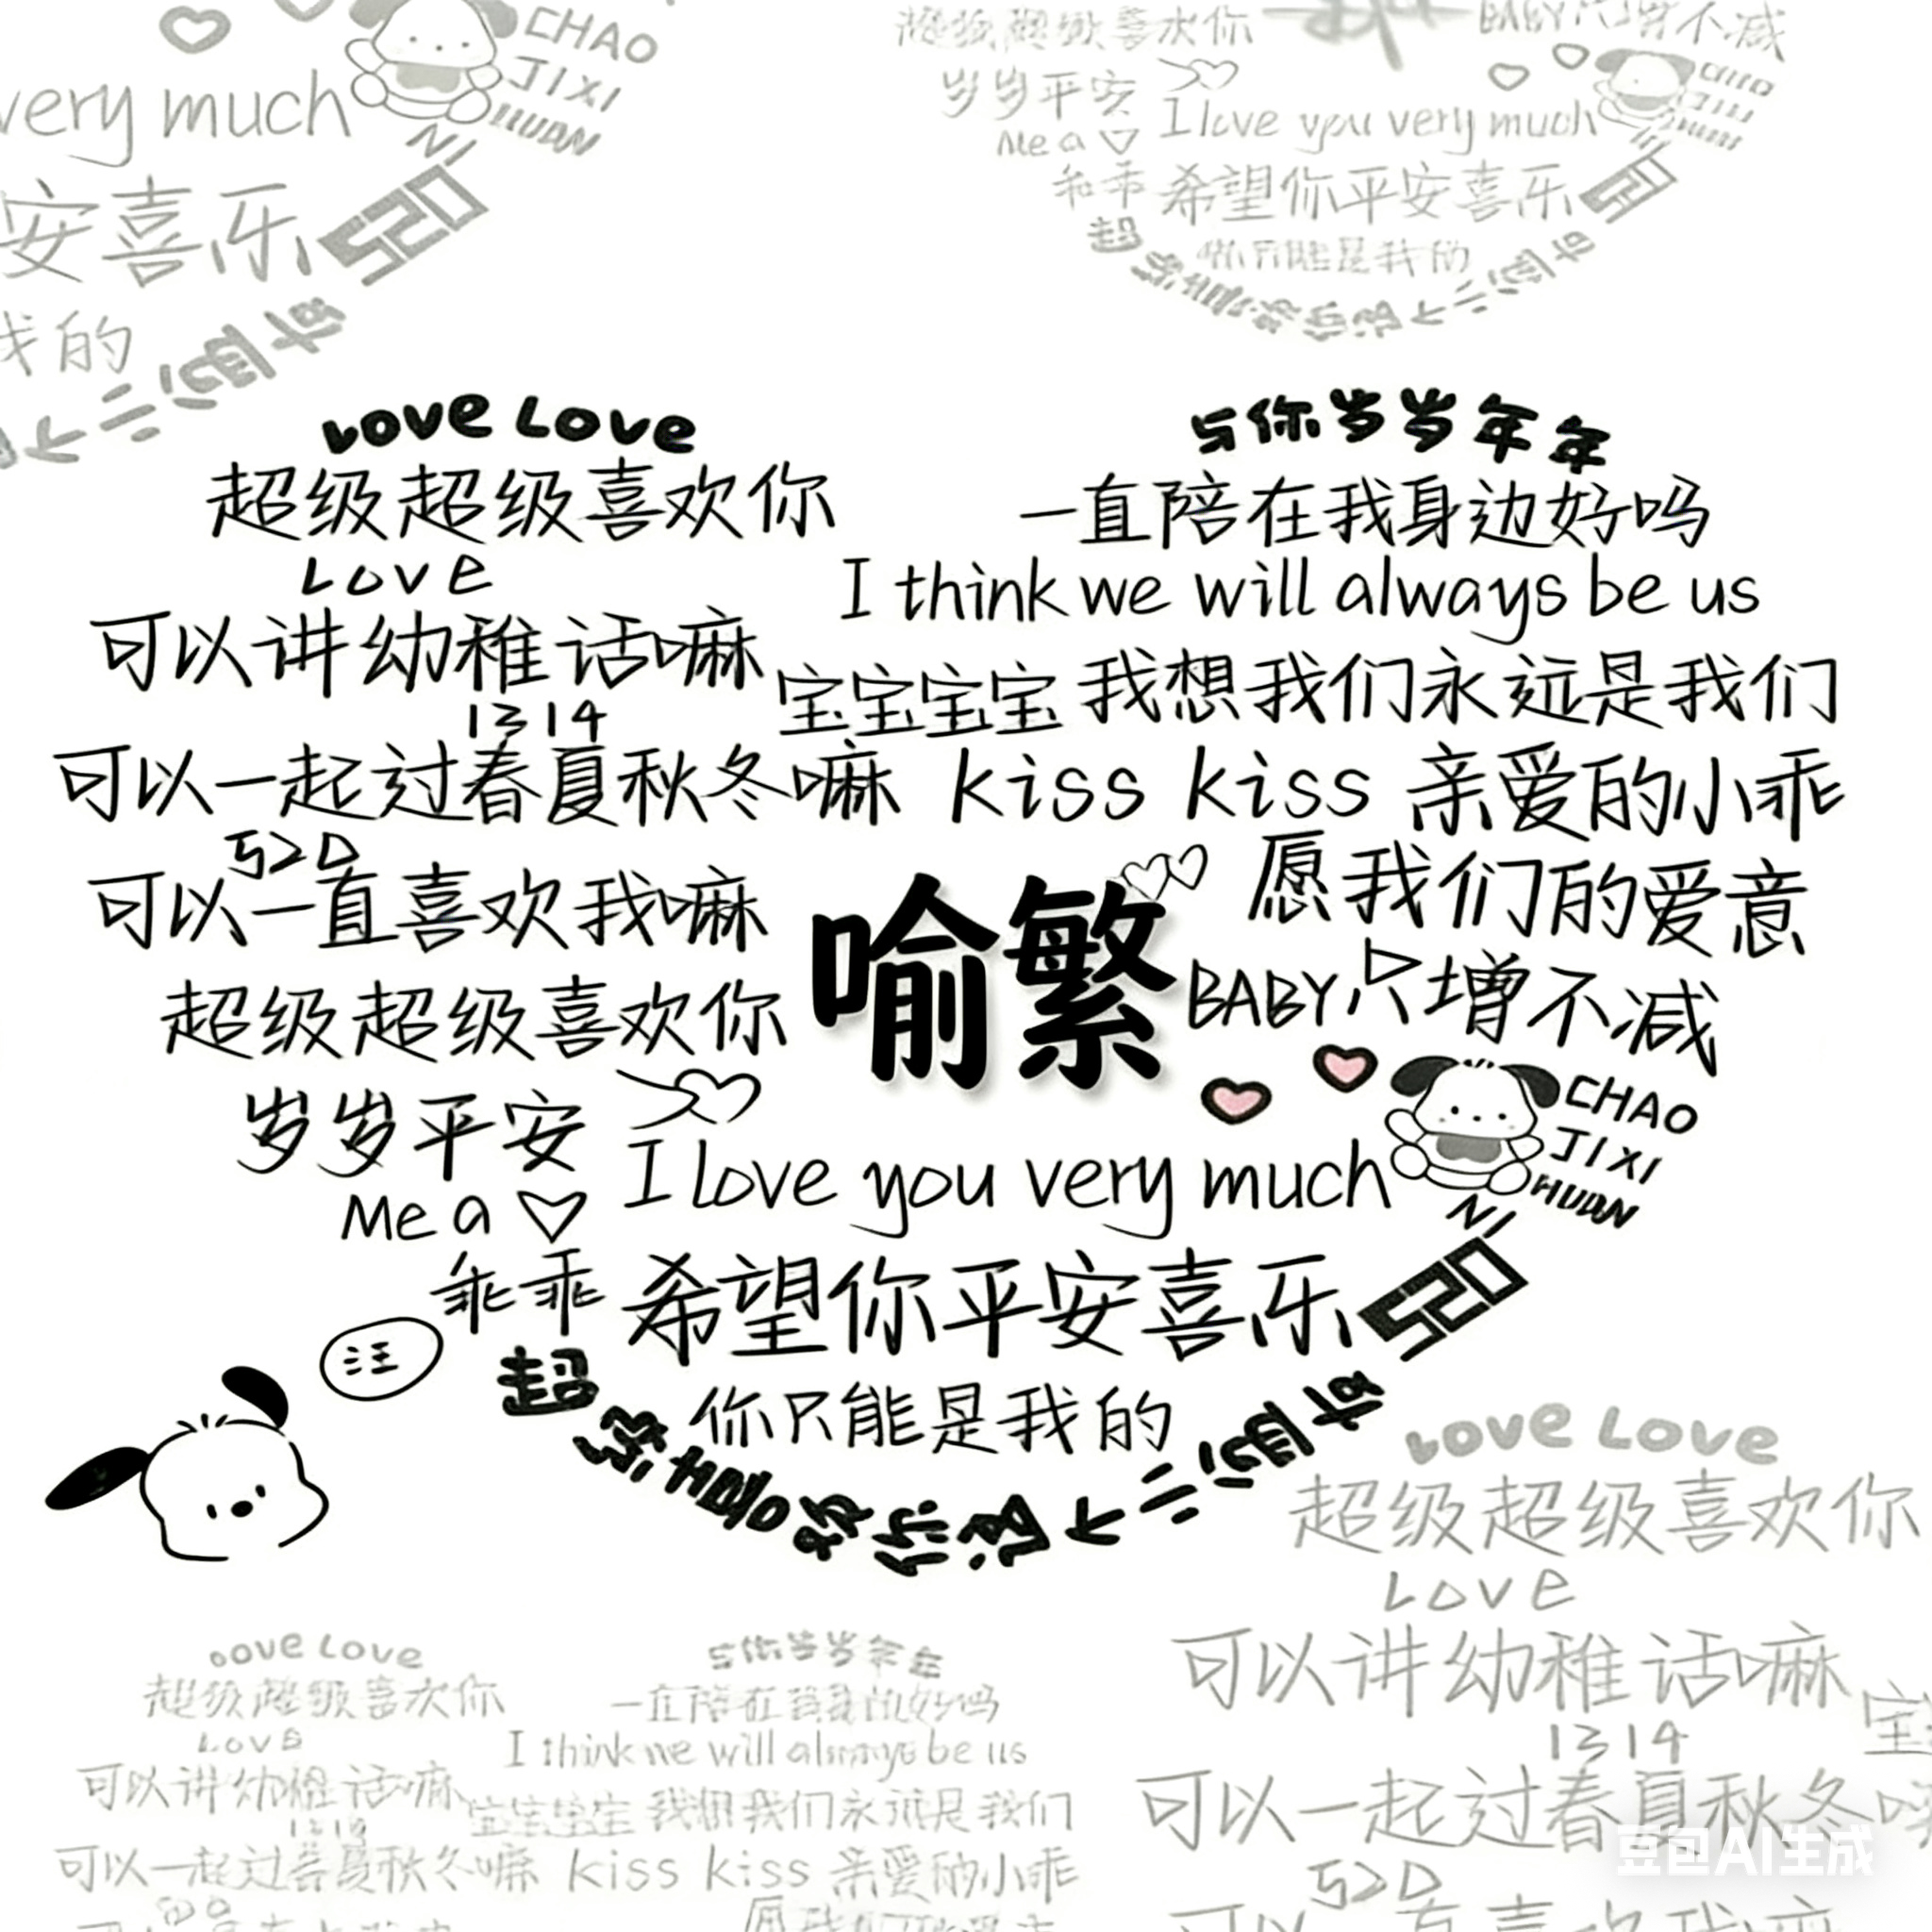 very much
CHAO
JIXI
HUAN
NI
安喜乐
520
我的
超级超级喜欢你
BABY只增不减
岁岁平安
CHAO
JIXI
HUAN
Me a
I love you very much
乖乖
希望你平安喜乐
520
你只能是我的
Love Love
与你岁岁年年
超级超级喜欢你
一直陪在我身边好吗
Love
I think we will always be us
可以讲幼稚话嘛
宝宝宝宝
我想我们永远是我们
1314
可以一起过春夏秋冬嘛
kiss kiss
亲爱的小乖
520
可以一直喜欢我嘛
喻繁
愿我们的爱意
超级超级喜欢你
BABY只增不减
岁岁平安
CHAO
JIXI
HUAN
NI
Me a
I love you very much
乖乖
希望你平安喜乐
520
汪
你只能是我的
Love Love
超级超级喜欢你
Love
可以讲幼稚话嘛
宝
1314
可以一起过春夏秋冬嘛
520
Love Love
与你岁岁年年
超级超级喜欢你
一直陪在我身边好吗
LOVE
I think we will always be us
可以讲幼稚话嘛
宝宝宝宝
我想我们永远是我们
1314
可以一起过春夏秋冬嘛
kiss kiss
亲爱的小乖
豆包AI生成